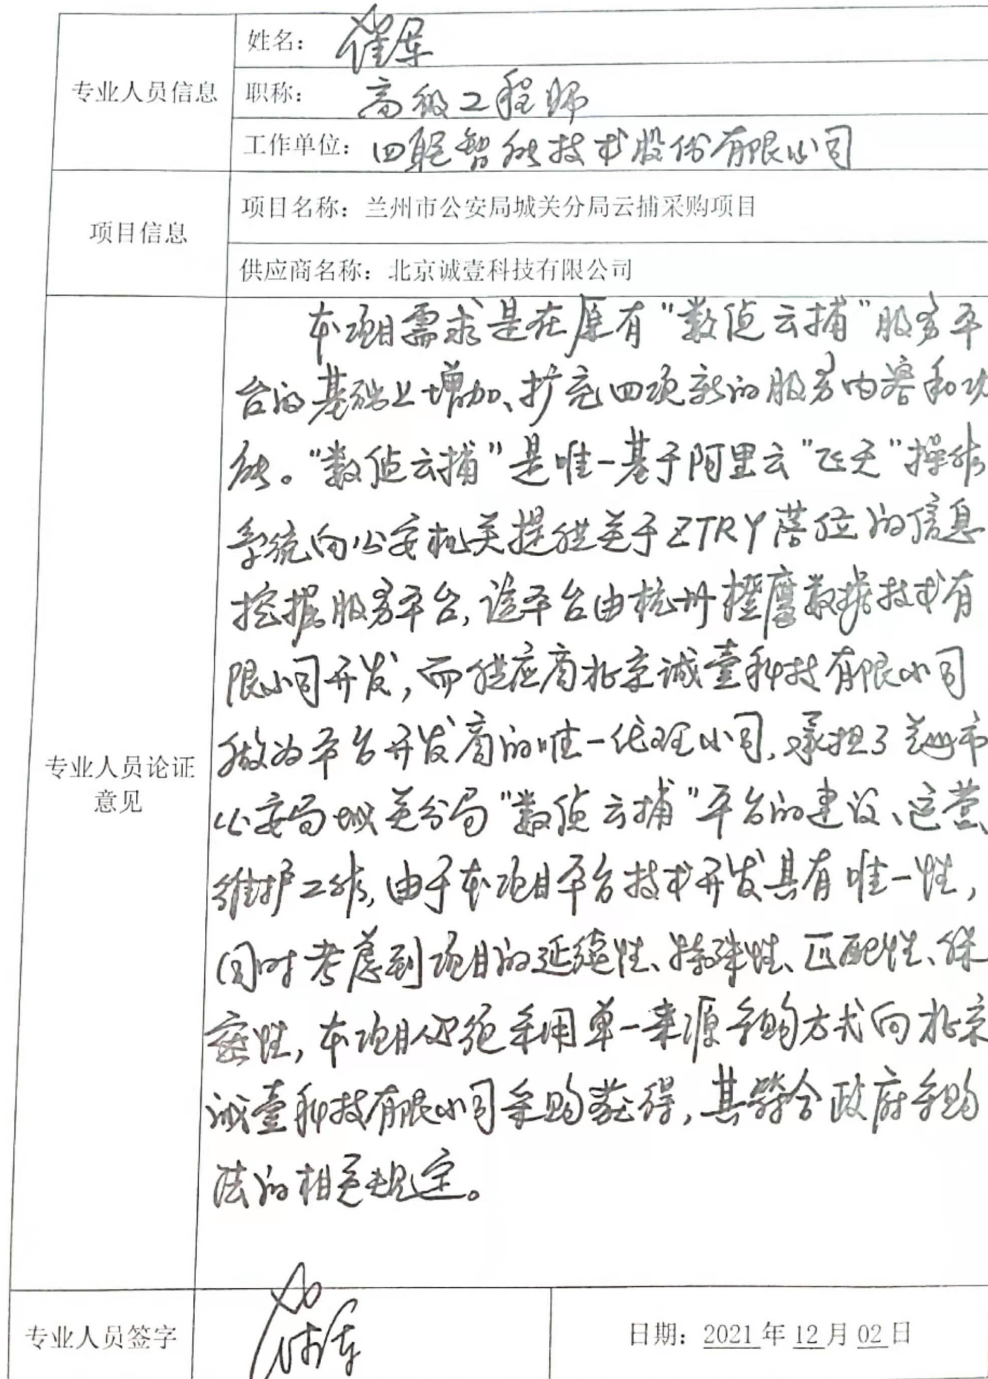 专业人员信息
姓名：崔军
职称：高级工程师
工作单位：四联智能技术股份有限公司
项目信息
项目名称：兰州市公安局城关分局云捕采购项目
供应商名称：北京诚壹科技有限公司
专业人员论证
意见
本项目需求是在原有“数侦云捕”服务平
台的基础上增加、扩充四项新的服务内容和功
能。“数侦云捕”是唯一基于阿里云“飞天”操作
系统向公安机关提供关于ZTRY落位的信息
挖掘服务平台，该平台由杭州橙鹰数据技术有
限公司开发，而供应商北京诚壹科技有限公司
做为平台开发商的唯一代理公司，承担了兰州市
公安局城关分局“数侦云捕”平台的建设、运营、
维护工作，由于本项目平台技术开发具有唯一性，
同时考虑到项目的延续性、特殊性、匹配性、保
密性，本项目必须采用单一来源采购方式向北京
诚壹科技有限公司采购获得，其符合政府采购
法的相关规定。
专业人员签字
崔军
日期：2021年12月02日